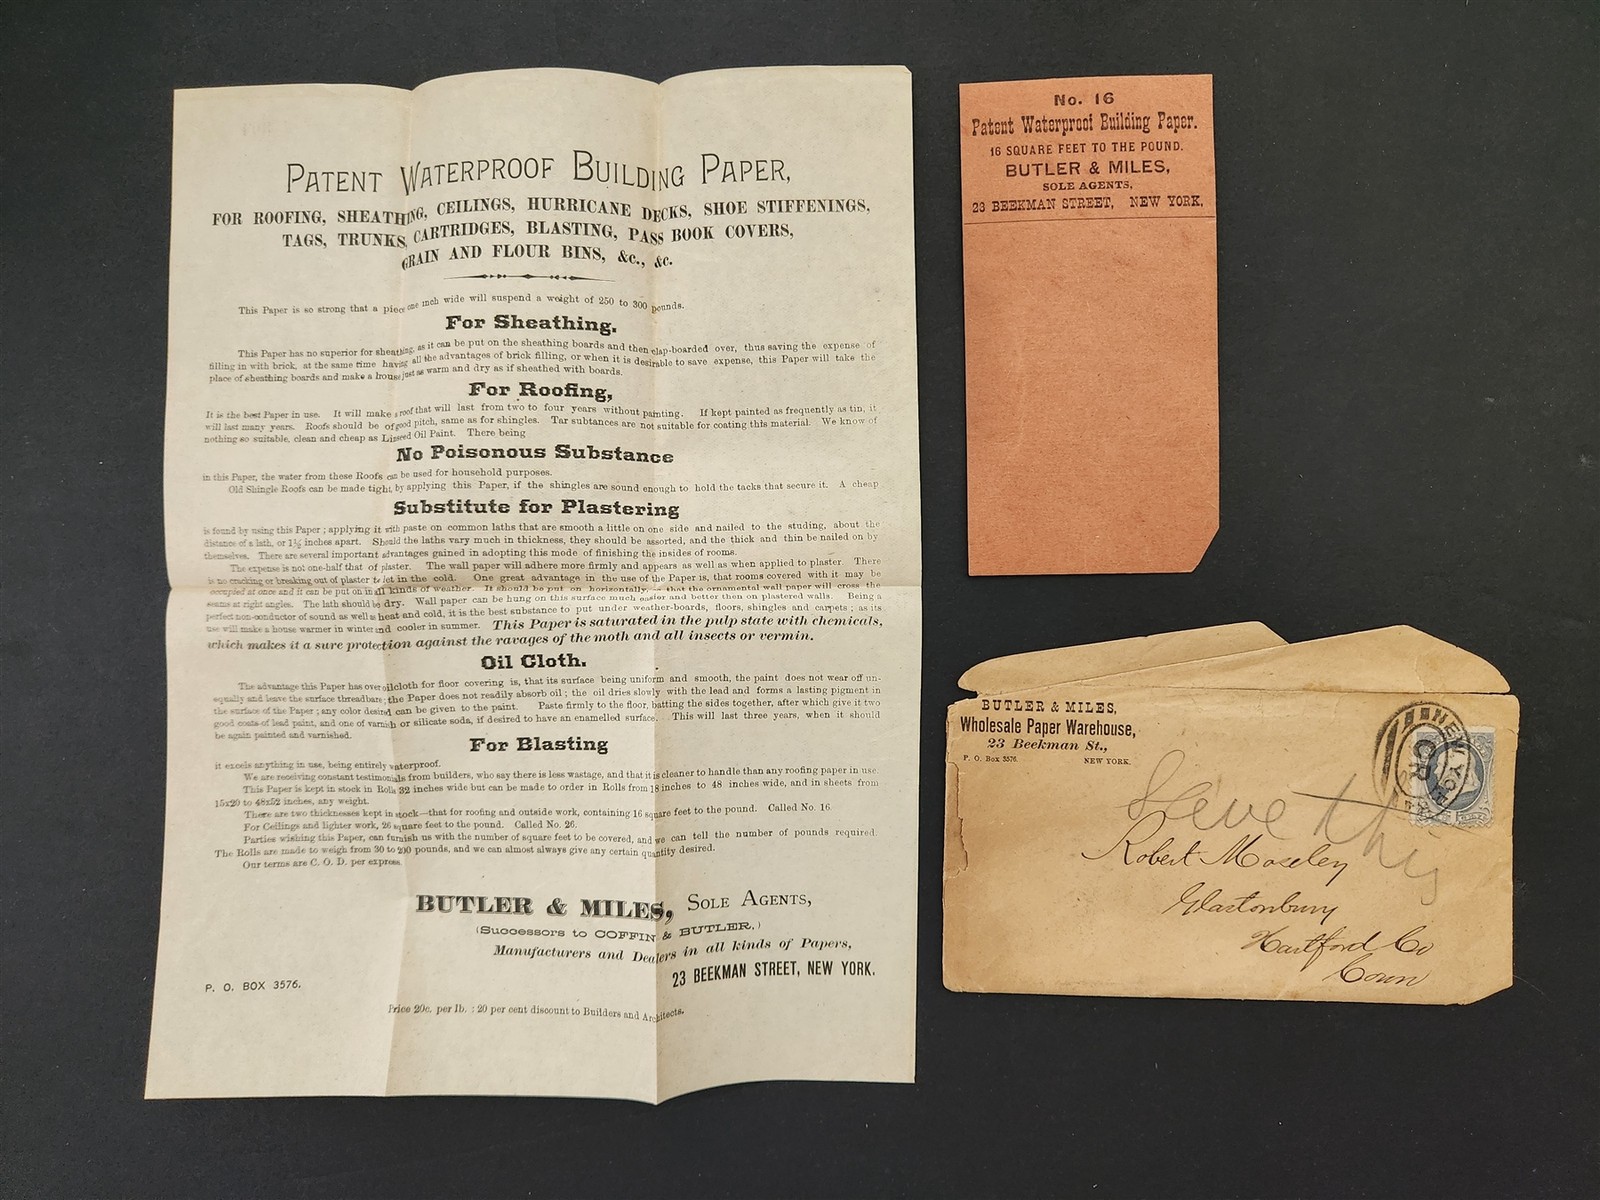 PATENT WATERPROOF BUILDING PAPER,
FOR ROOFING, SHEATHING, CEILINGS, HURRICANE DECKS, SHOE STIFFENINGS,
TAGS, TRUNKS, CARTRIDGES, BLASTING, PASS BOOK COVERS,
GRAIN AND FLOUR BINS, &c., &c.
This Paper is so strong that a piece one inch wide will suspend a weight of 250 to 300 pounds.
For Sheathing.
This Paper has no superior for sheathing, as it can be put on the sheathing boards and then clap-boarded over, thus saving the expense of
filling in with brick, at the same time having all the advantages of brick filling, or when it is desirable to save expense, this Paper will take the
place of sheathing boards and make a house just as warm and dry as if sheathed with boards.
For Roofing,
It is the best Paper in use. It will make a roof that will last from two to four years without painting. If kept painted as frequently as tin, it
will last many years. Roofs should be of good pitch, same as for shingles. Tar subtances are not suitable for coating this material. We know of
nothing so suitable, clean and cheap as Linseed Oil Paint. There being
No Poisonous Substance
in this Paper, the water from these Roofs can be used for household purposes.
Old Shingle Roofs can be made tight, by applying this Paper, if the shingles are sound enough to hold the tacks that secure it. A cheap
Substitute for Plastering
is found by using this Paper; applying it with paste on common laths that are smooth a little on one side and nailed to the studing, about the
distance of a lath, or 1½ inches apart. Should the laths vary much in thickness, they should be assorted, and the thick and thin be nailed on by
themselves. There are several important advantages gained in adopting this mode of finishing the insides of rooms.
The expense is not one-half that of plaster. The wall paper will adhere more firmly and appears as well as when applied to plaster. There
is no cracking or breaking out of plaster to let in the cold. One great advantage in the use of the Paper is, that rooms covered with it may be
occupied at once and it can be put on in all kinds of weather. It should be put on horizontally, that the ornamental wall paper will cross the
seams at right angles. The lath should be dry. Wall paper can be hung on this surface much easier and better then on plastered walls. Being a
perfect non-conductor of sound as well as heat and cold, it is the best substance to put under weather-boards, floors, shingles and carpets; as its
use will make a house warmer in winter and cooler in summer. This Paper is saturated in the pulp state with chemicals,
which makes it a sure protection against the ravages of the moth and all insects or vermin.
Oil Cloth.
The advantage this Paper has over oilcloth for floor covering is, that its surface being uniform and smooth, the paint does not wear off un-
equally and leave the surface threadbare; the Paper does not readily absorb oil; the oil dries slowly with the lead and forms a lasting pigment in
the surface of the Paper; any color desired can be given to the paint. Paste firmly to the floor, batting the sides together, after which give it two
good coats of lead paint, and one of varnish or silicate soda, if desired to have an enamelled surface. This will last three years, when it should
be again painted and varnished.
For Blasting
it excels anything in use, being entirely waterproof.
We are receiving constant testimonials from builders, who say there is less wastage, and that it is cleaner to handle than any roofing paper in use.
This Paper is kept in stock in Rolls 32 inches wide but can be made to order in Rolls from 18 inches to 48 inches wide, and in sheets from
15x20 to 48x52 inches, any weight.
There are two thicknesses kept in stock—that for roofing and outside work, containing 16 square feet to the pound. Called No. 16.
For Ceilings and lighter work, 26 square feet to the pound. Called No. 26.
Parties wishing this Paper, can furnish us with the number of square feet to be covered, and we can tell the number of pounds required.
The Rolls are made to weigh from 30 to 200 pounds, and we can almost always give any certain quantity desired.
Our terms are C. O. D. per express.
BUTLER & MILES, SOLE AGENTS,
(Successors to COFFIN & BUTLER,)
Manufacturers and Dealers in all kinds of Papers,
23 BEEKMAN STREET, NEW YORK.
P. O. BOX 3576.
Price 20c. per lb. : 20 per cent discount to Builders and Architects.
No. 16
Patent Waterproof Building Paper.
16 SQUARE FEET TO THE POUND.
BUTLER & MILES,
SOLE AGENTS,
23 BEEKMAN STREET, NEW YORK.
BUTLER & MILES,
Wholesale Paper Warehouse,
23 Beekman St.,
P. O. Box 3576. NEW YORK.
NEW YORK
Save this
Robert Moseley
Glastonbury
Hartford Co
Conn